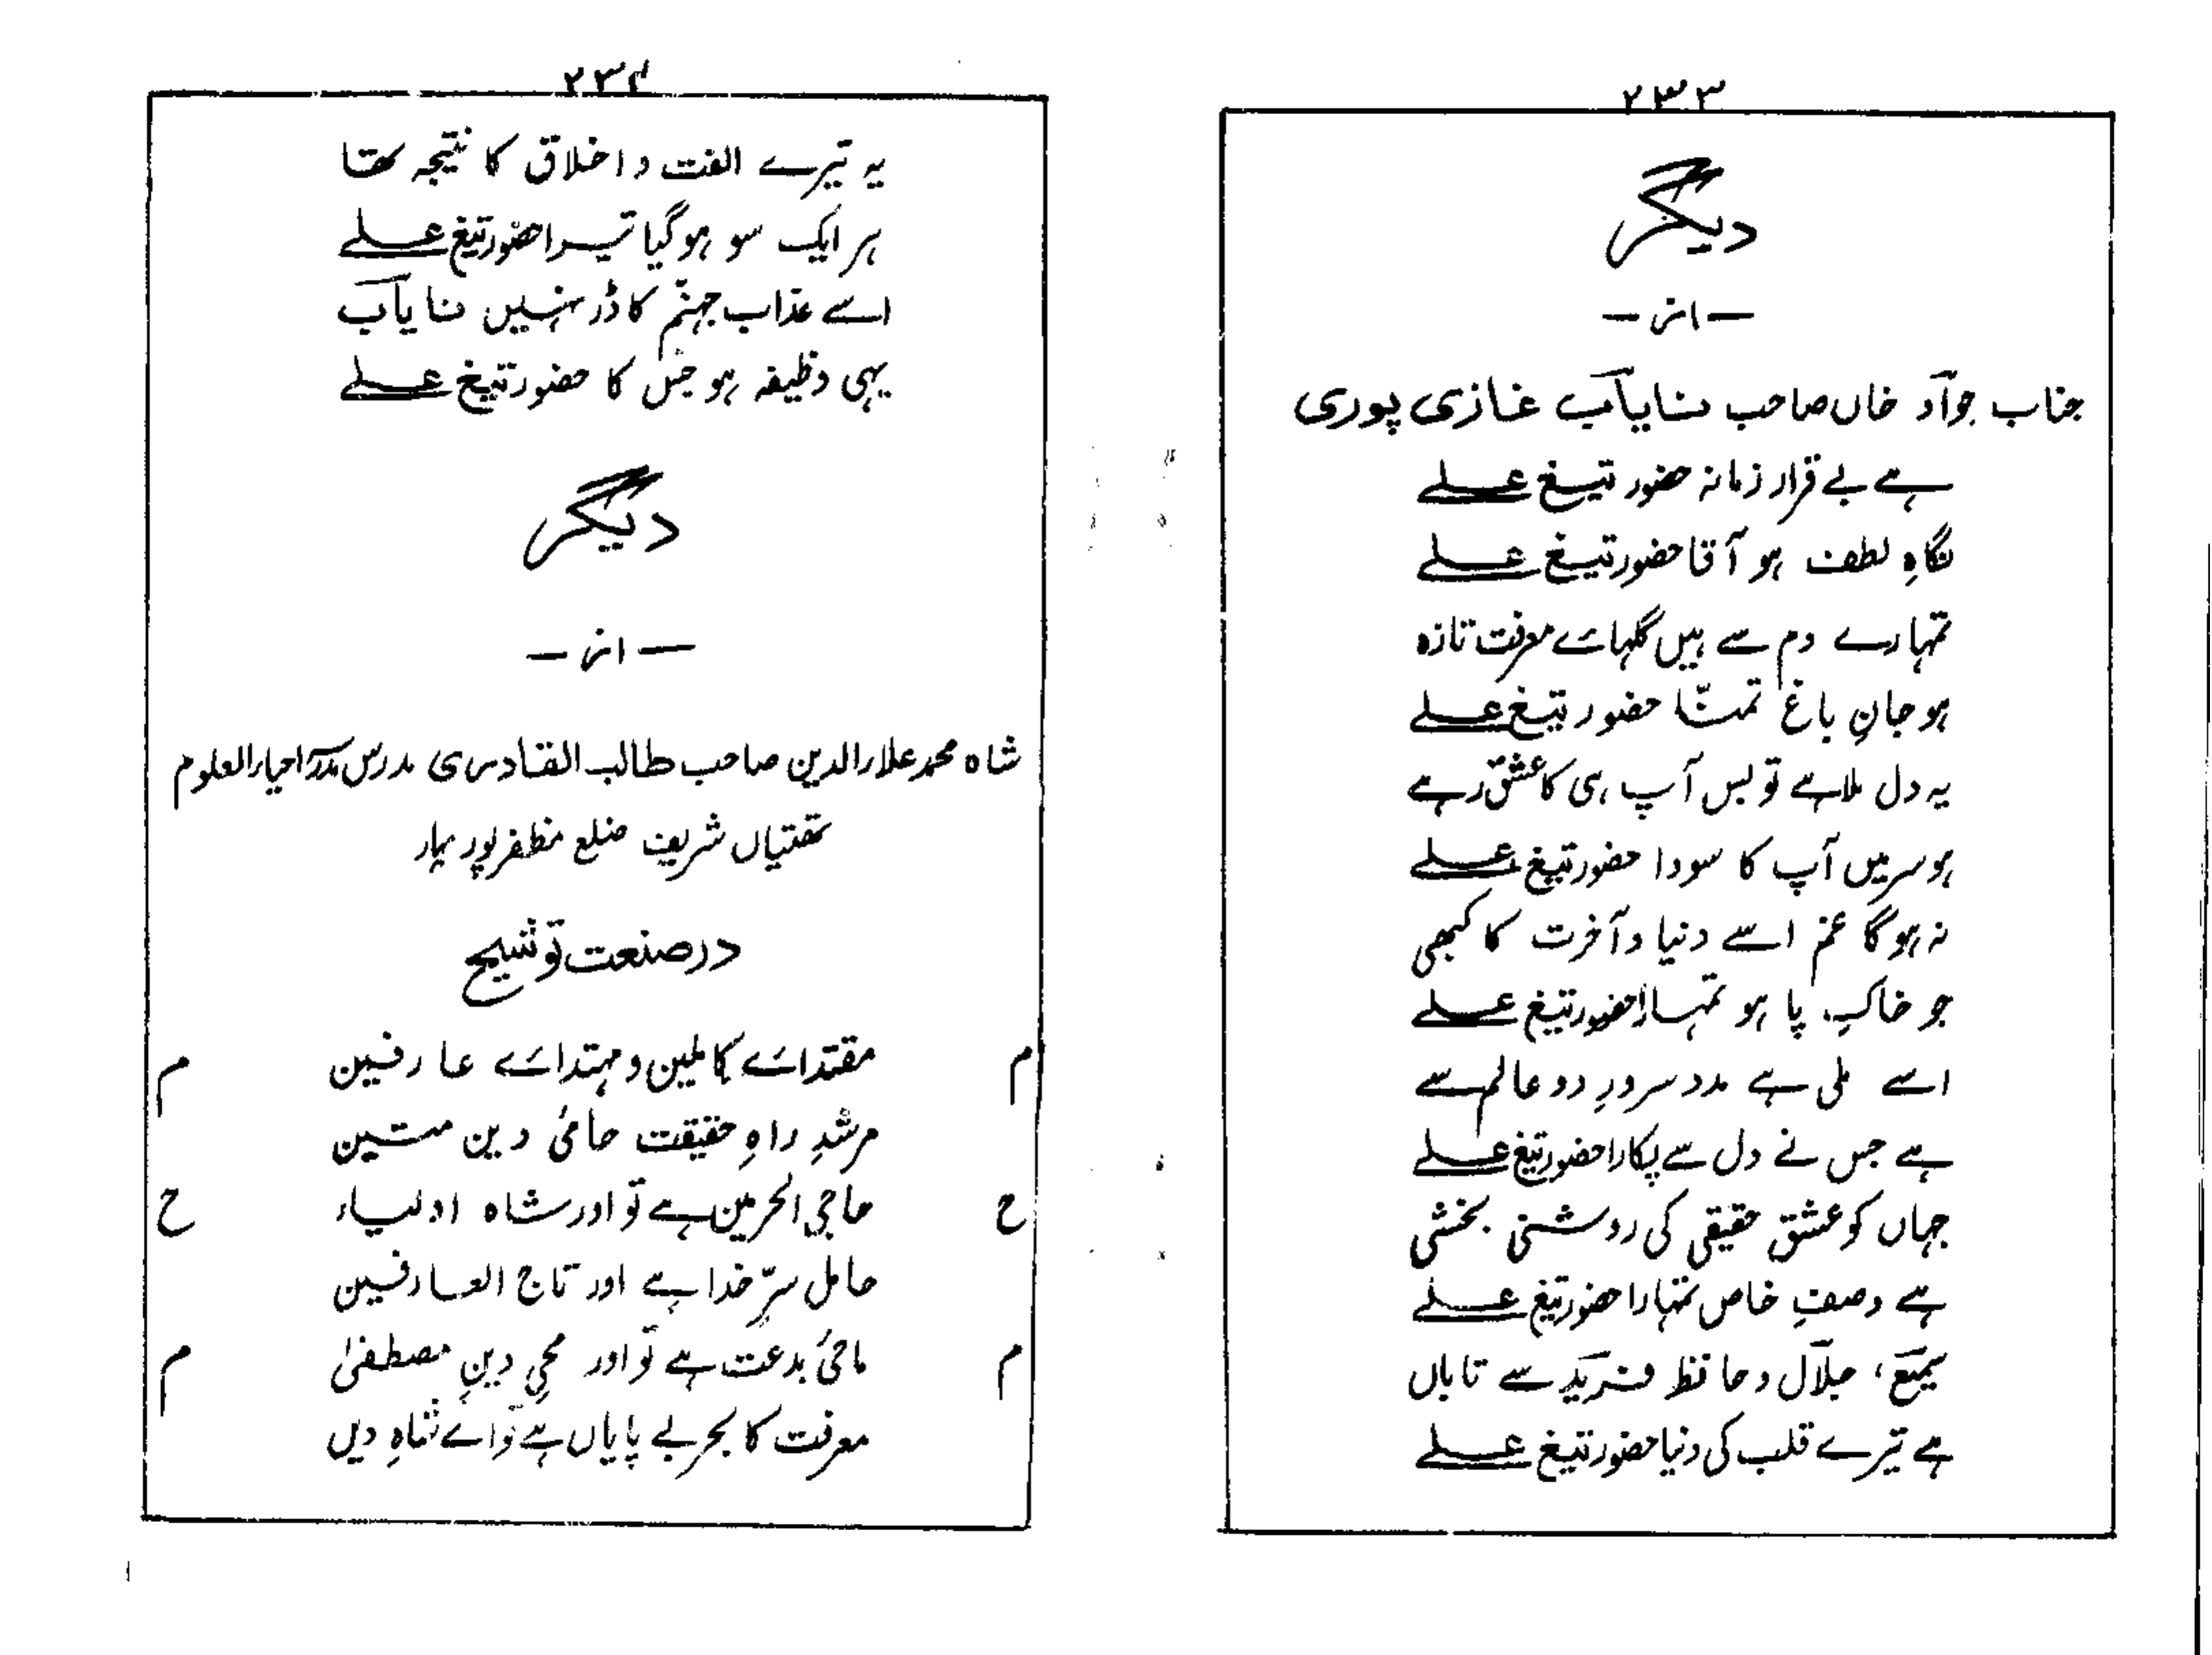 ۲۳۳
دیگر
— از —
جناب جوآد خاں صاحب نایاب غازی پوری
ہے بے قرار زمانہ حضور تیغ علے
نگاہِ لطف ہو آقا حضور تیغ علے
تمہارے دم سے ہیں گلہائے معرفت تازہ
ہو جانِ باغ تمنّا حضور تیغ علے
یہ دل ملا ہے تو بس آپ ہی کا عشق رہے
ہو سر میں آپ کا سودا حضور تیغ علے
نہ ہوگا غم اسے دنیا و آخرت کا کبھی
جو خاکِ پا ہو تمہارا حضور تیغ علے
اسے ملی ہے مدد سرورِ دو عالم سے
ہے جس نے دل سے پکارا حضور تیغ علے
جہاں کو عشق حقیقی کی روشنی بخشی
ہے وصفِ خاص تمہارا حضور تیغ علے
سمیع، جلال و حافظ فرید سے تاباں
ہے تیرے قلب کی دنیا حضور تیغ علے
۲۳۴
یہ تیرے الفت و اخلاق کا نتیجہ تھا
ہر ایک سو ہوگیا تیرا حضور تیغ علے
اسے عذاب جہنّم کا ڈر نہیں نایاب
یہی وظیفہ ہو جس کا حضور تیغ علے
دیگر
— از —
شاہ محمد علاء الدین صاحب طالب القادری مدرس مدرسہ احیاء العلوم
تھتیاں شریف ضلع مظفر پور بہار
در صنعت توشیح
م مقتدائے کاملین و مہتدائے عارفین م
مرشدِ راہِ حقیقت حامیٔ دین متین
ح حاجی الحرمین ہے تو اور شاہ اولیاء ح
حامل سرِّ خدا ہے اور تاج العارفین
م ماحیٔ بدعت ہے تو اور محیِ دینِ مصطفیٰ م
معرفت کا بحرِ بے پایاں ہے تو اے شاہِ دیں